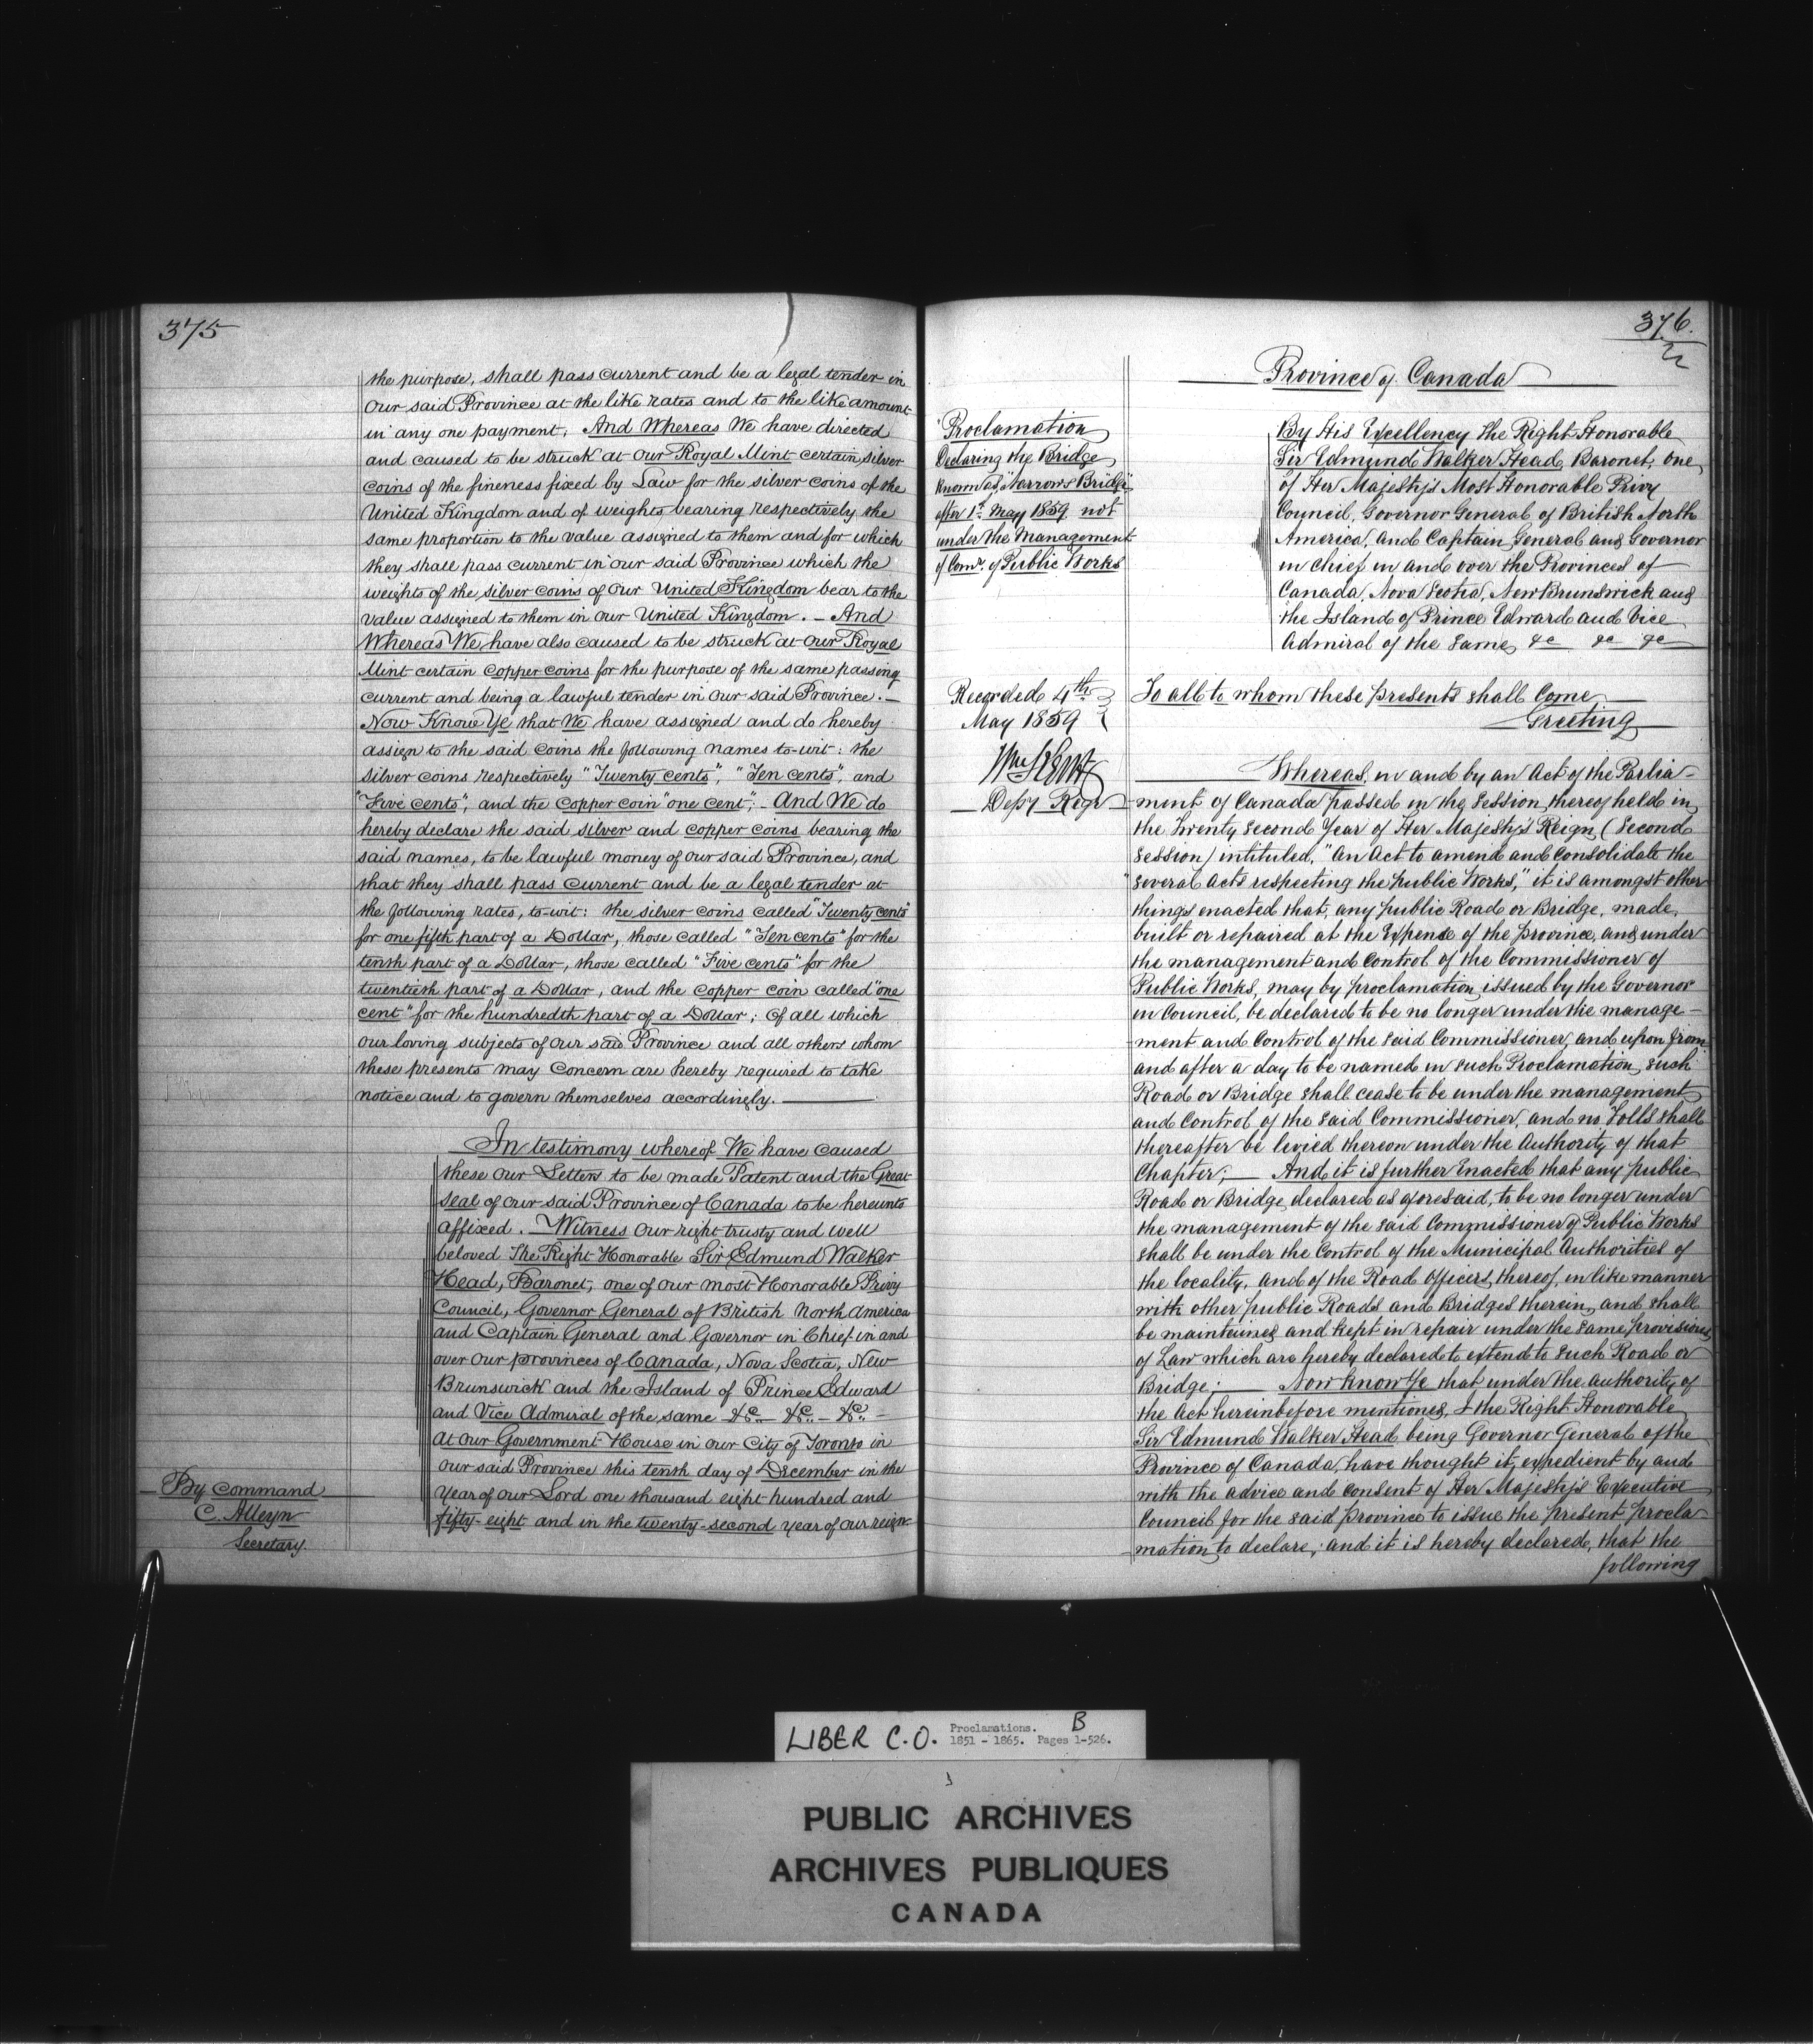 375
the purpose, shall pass current and be a legal tender in
our said Province at the like rates and to the like amount
in any one payment. And Whereas We have directed
and caused to be struck at our Royal Mint certain silver
coins of the fineness fixed by Law for the silver coins of the
United Kingdom and of weights bearing respectively the
same proportion to the value assigned to them and for which
they shall pass current in our said Province which the
weights of the silver coins of our United Kingdom bear to the
value assigned to them in our United Kingdom. – And
Whereas We have also caused to be struck at our Royal
Mint certain copper coins for the purpose of the same passing
current and being a lawful tender in our said Province. –
Now Know Ye that We have assigned and do hereby
assign to the said coins the following names to-wit: the
silver coins respectively "Twenty cents", "Ten cents", and
"Five cents", and the copper coin "one cent"; – And We do
hereby declare the said silver and copper coins bearing the
said names, to be lawful money of our said Province, and
that they shall pass current and be a legal tender at
the following rates, to-wit: the silver coins called "Twenty cents"
for one fifth part of a Dollar, those called "Ten cents" for the
tenth part of a Dollar, those called "Five cents" for the
twentieth part of a Dollar, and the copper coin called "one
cent" for the hundredth part of a Dollar; Of all which
our loving subjects of our said Province and all others whom
these presents may concern are hereby required to take
notice and to govern themselves accordingly.
In testimony whereof We have caused
these our Letters to be made Patent and the Great
seal of our said Province of Canada to be hereunto
affixed. Witness our right trusty and well
beloved The Right Honorable Sir Edmund Walker
Head, Baronet, one of our most Honorable Privy
Council, Governor General of British North America
and Captain General and Governor in Chief in and
over our provinces of Canada, Nova Scotia, New
Brunswick and the Island of Prince Edward
and Vice Admiral of the same &c. – &c. – &c. –
At our Government House in our City of Toronto in
our said Province this tenth day of December in the
year of our Lord one thousand eight hundred and
fifty-eight and in the twenty-second year of our reign
By command
C. Alleyn
Secretary.
376.
Province of Canada
Proclamation
Declaring the Bridge
known as "Narrows Bridge"
after 1st. May 1859 not
under the Management
of Comr. of Public Works
By His Excellency the Right Honorable
Sir Edmund Walker Head, Baronet, one
of Her Majesty's Most Honorable Privy
Council, Governor General of British North
America, and Captain General and Governor
in Chief in and over the Provinces of
Canada, Nova Scotia, New Brunswick and
the Island of Prince Edward and Vice
Admiral of the Same &c &c &c
Recorded 4th
May 1859
Depy Regr
To all to whom these presents shall Come
Greeting
Whereas, in and by an Act of the Parlia-
ment of Canada passed in the Session thereof held in
the Twenty second Year of Her Majesty's Reign, (Second
Session) intituled, "An Act to amend and Consolidate the
"several Acts respecting the public Works," it is amongst other
things enacted that, any public Road or Bridge, made,
built or repaired at the Expense of the province, and under
the management and Control of the Commissioner of
Public Works, may by proclamation issued by the Governor
in Council, be declared to be no longer under the manage-
ment and Control of the said Commissioner, and upon from
and after a day to be named in such Proclamation, such
Road or Bridge shall cease to be under the management
and Control of the said Commissioner, and no Tolls shall
thereafter be levied thereon under the Authority of that
Chapter; And it is further Enacted that any public
Road or Bridge declared as aforesaid, to be no longer under
the management of the said Commissioner of Public Works
shall be under the Control of the Municipal Authorities of
the locality, and of the Road Officers thereof, in like manner
with other public Roads and Bridges therein, and shall
be maintained and kept in repair under the same provisions
of Law which are hereby declared to extend to such Road or
Bridge; Now Know Ye that under the authority of
the Act hereinbefore mentioned, I the Right Honorable
Sir Edmund Walker Head being Governor General of the
Province of Canada, have thought it expedient by and
with the advice and consent of Her Majesty's Executive
Council for the said province to issue the present procla-
mation to declare; and it is hereby declared, that the
following
LIBER C.O. Proclamations. B
1851 - 1865. Pages 1-526.
PUBLIC ARCHIVES
ARCHIVES PUBLIQUES
CANADA